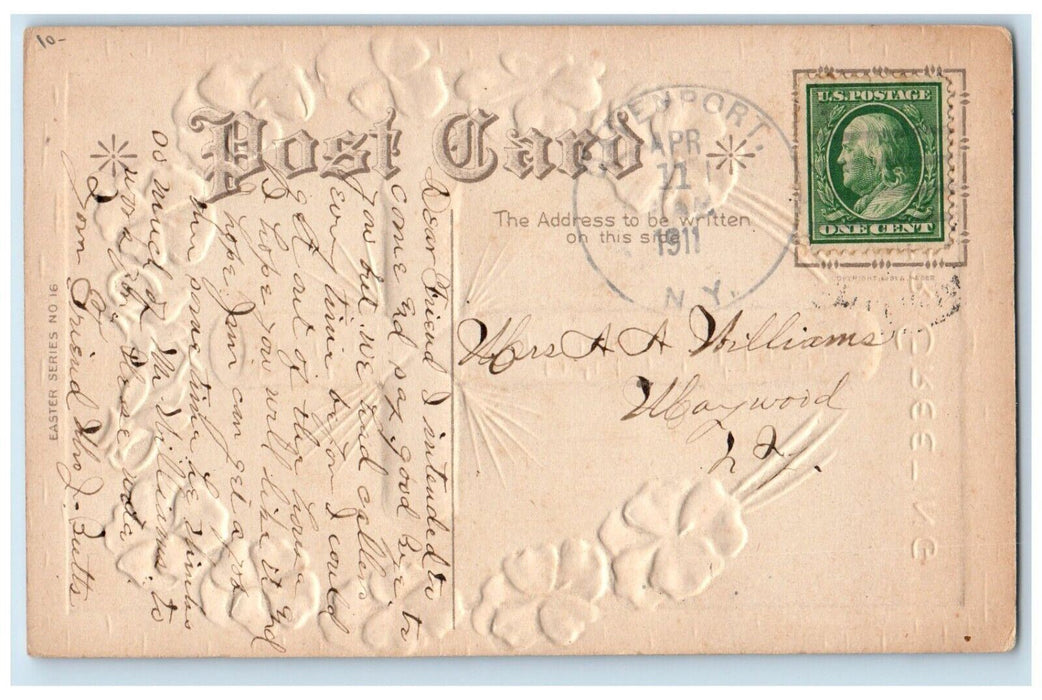 10-
Post Card
The Address to be written
on this side
U.S. POSTAGE
ONE CENT
ENPORT.
APR
11
1911
N.Y.
Mrs A A Williams
Maywood
EASTER SERIES NO 16
Dear Friend I intended to
come and say good bye to
you but we had callers
every time before I could
get out of the house
I hope you will like it and
I hope Jam can get a job
then some time he thinks
as much of Mr Williams to
work
Your Friend Mrs J. Butts
GREETING